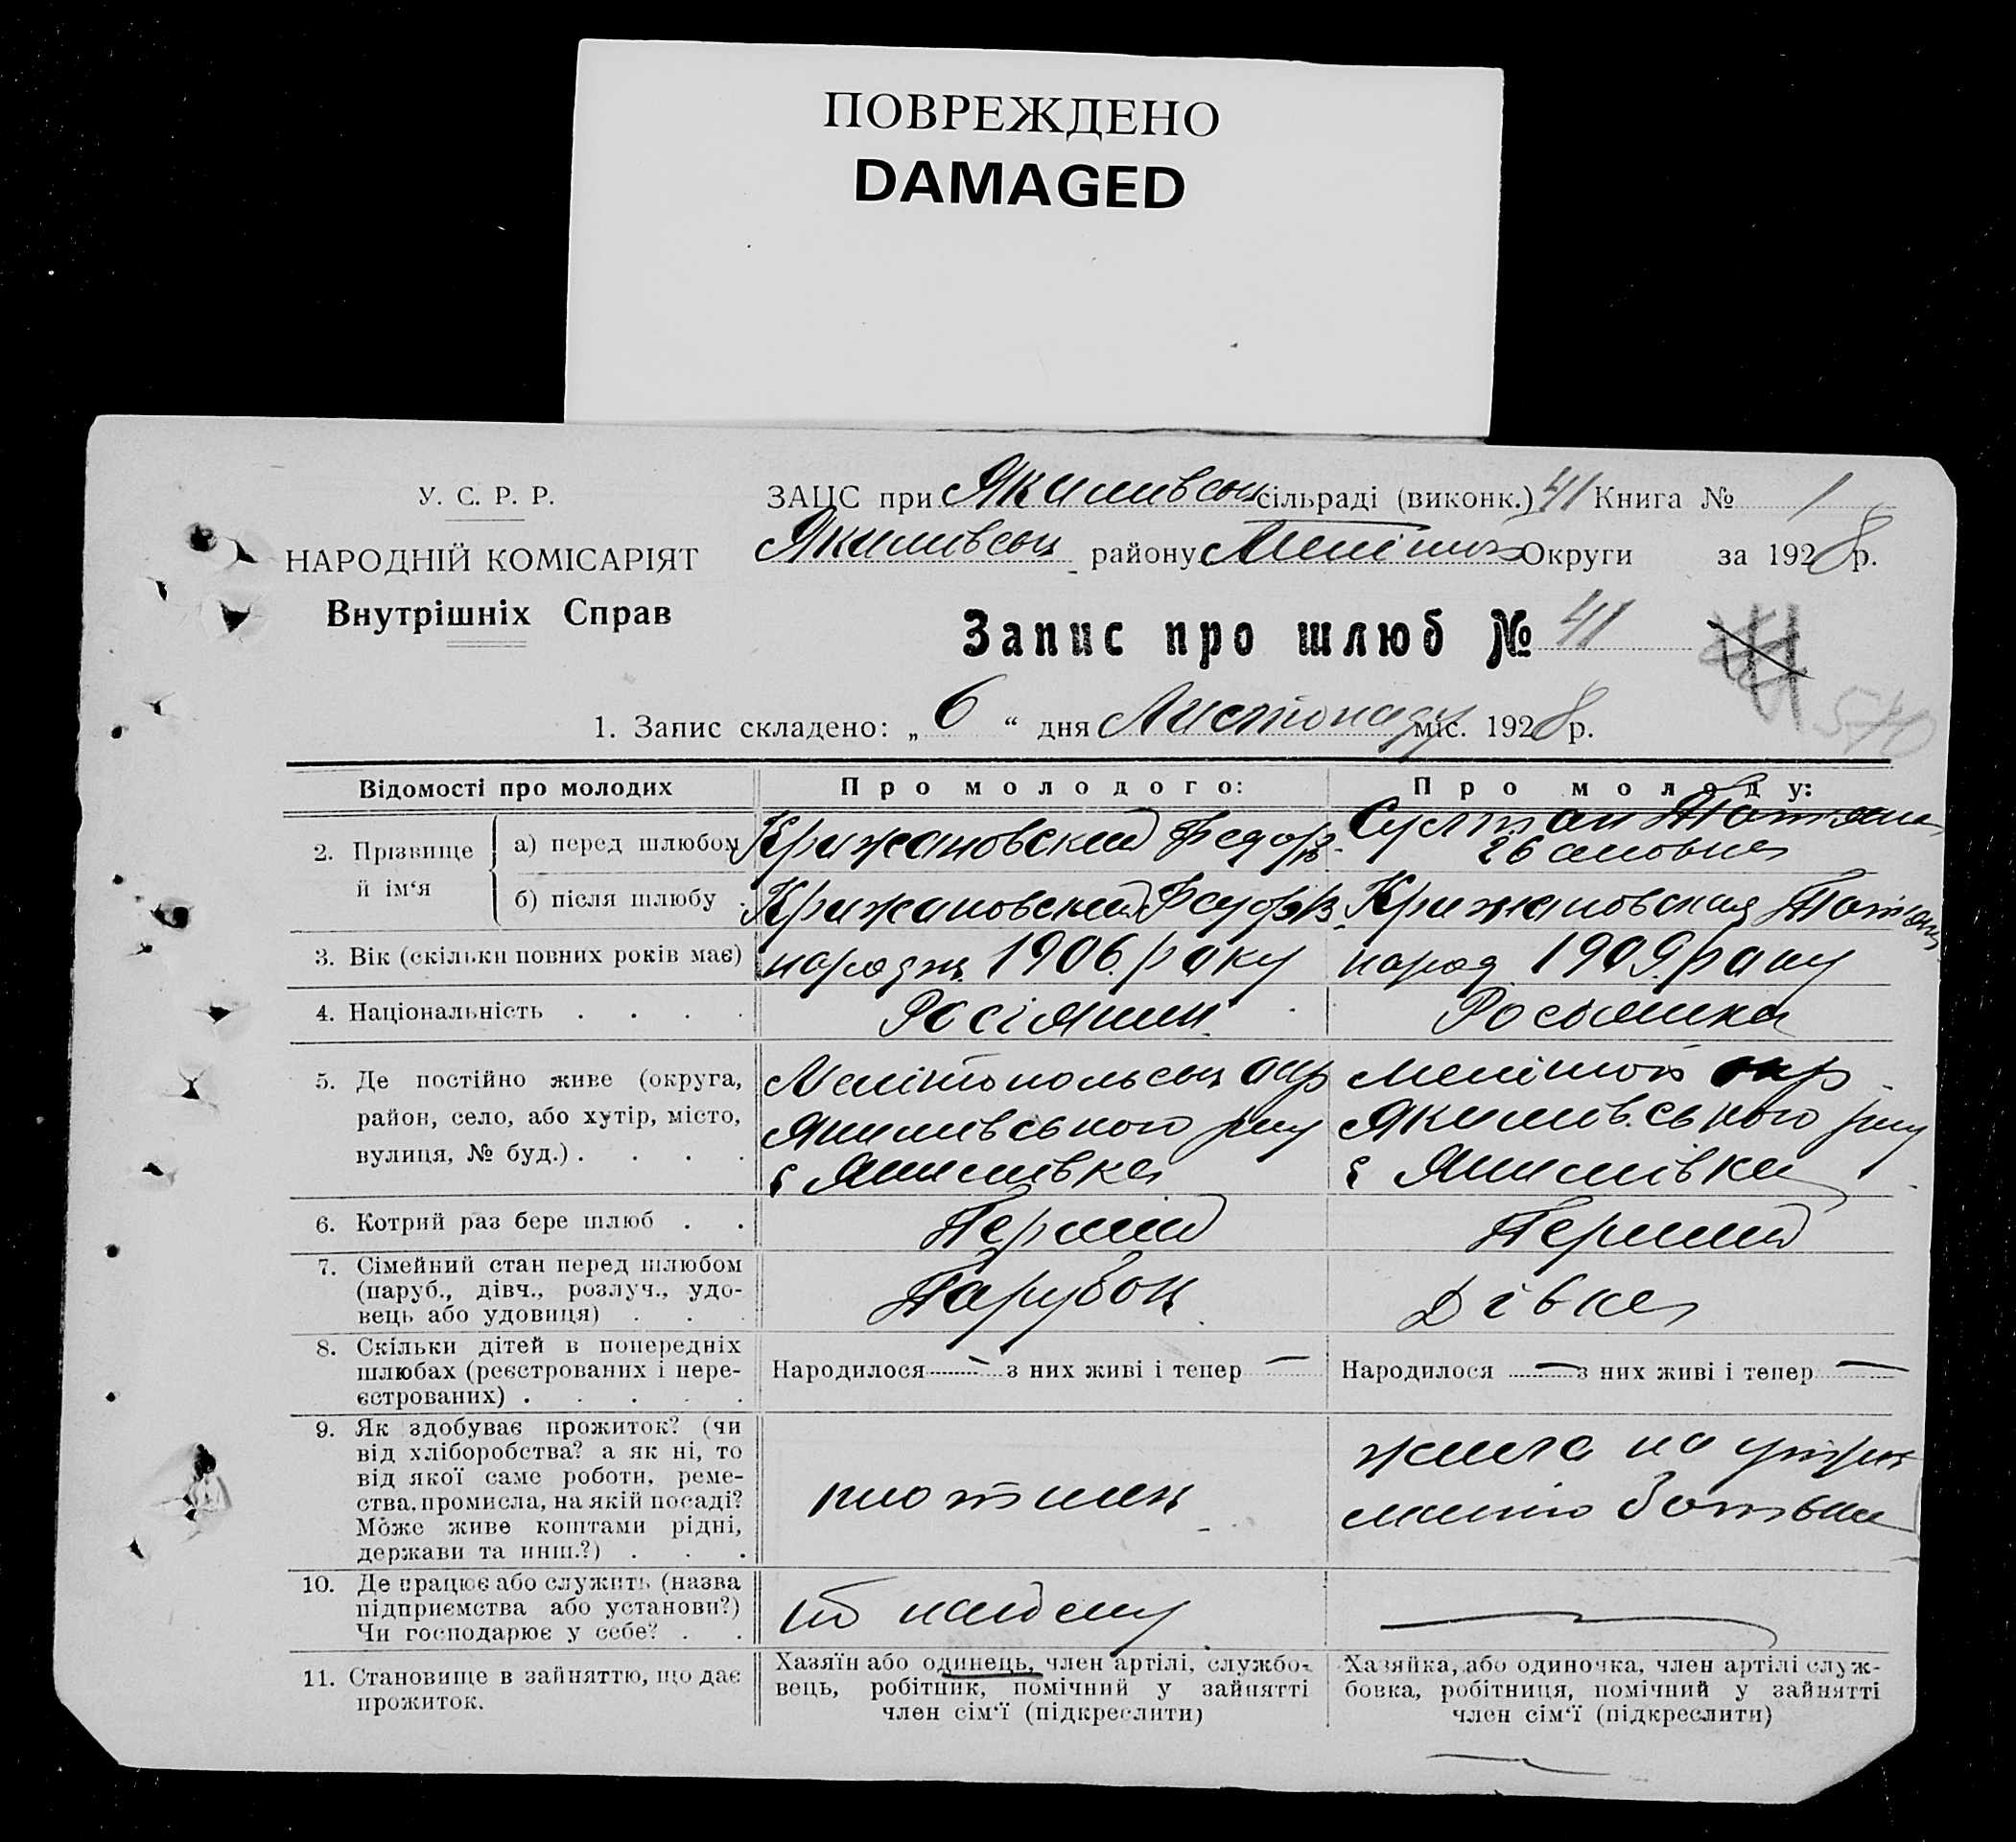 ПОВРЕЖДЕНО
DAMAGED
У. С. Р. Р.
НАРОДНІЙ КОМІСАРІЯТ
Внутрішніх Справ
ЗАЦС при Якимівськ сільраді (виконк.) 41 Книга № 1
Якимівськ району Меліток Округи за 1928 р.
Запис про шлюб № 41
540
1. Запис складено: „ 6 “ дня Листопаду міс. 1928 р.
Відомості про молодих
Про молодого:
Про молоду:
2. Прізвище й ім‘я
а) перед шлюбом
Крижановский Федор
б) після шлюбу
Крижановский Федор
Крижановская Татяна
3. Вік (скільки повних років має)
народж. 1906 року
народ 1909 року
4. Національність . . . .
Росіянин
Росьянка
5. Де постійно живе (округа,
район, село, або хутір, місто,
вулиця, № буд.) . . . .
Мелітопольськ окр
Якимівського р-ну
с Якимівка
Меліток окр
Якимівського р-ну
с Якимівка
6. Котрий раз бере шлюб . .
Перший
Перший
7. Сімейний стан перед шлюбом
(паруб., дівч., розлуч., удо-
вець або удовиця) . . .
Парубок
Дівка
8. Скільки дітей в попередніх
шлюбах (реєстрованих і нере-
єстрованих) . . . . .
Народилося — з них живі і тепер —
Народилося — з них живі і тепер —
9. Як здобуває прожиток? (чи
від хліборобства? а як ні, то
від якої саме роботи, реме-
ства, промисла, на якій посаді?
Може живе коштами рідні,
держави та инш.?) . . .
плотник
жила на утри
манню батьки
10. Де працює або служить (назва
підприємства або установи?)
Чи господарює у себе? . .
по найому
11. Становище в зайняттю, що дає
прожиток.
Хазяїн або одинець, член артілі, службо-
вець, робітник, помічний у зайнятті
член сім‘ї (підкреслити)
Хазяйка, або одиночка, член артілі служ-
бовка, робітниця, помічний у зайнятті
член сім‘ї (підкреслити)